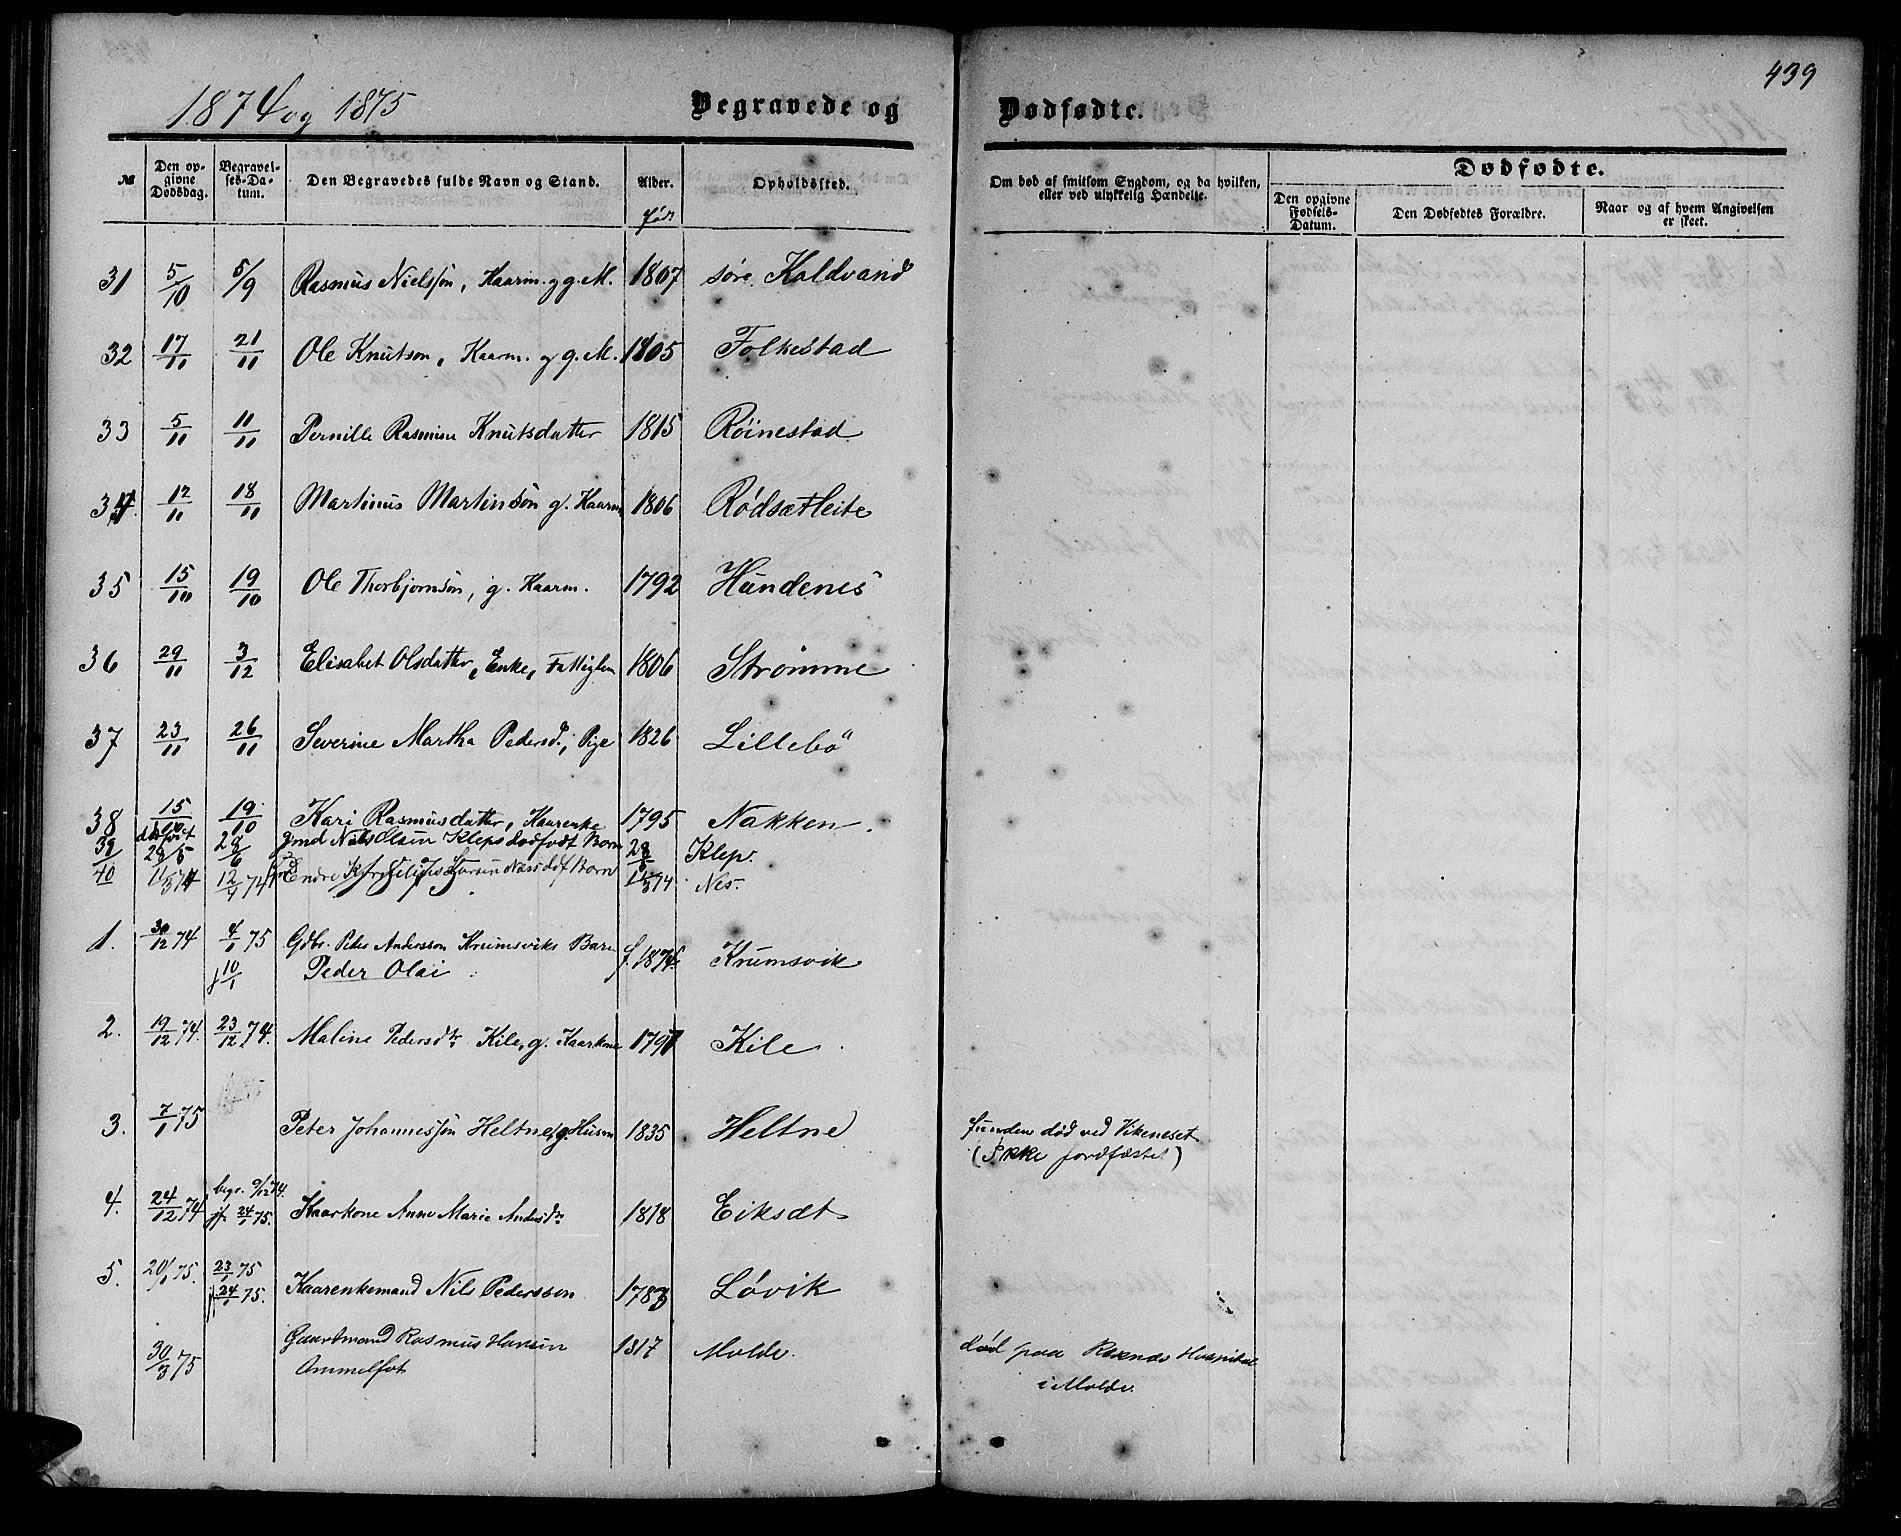 439
1874 og 1875 Begravede og Dødfødte.
№ Den opgivne Dødsdag. Begravelses-Datum. Den Begravedes fulde Navn og Stand. Alder. Opholdssted. Om død af smitsom Sygdom, og da hvilken, eller ved ulykkelig Hændelse. Dødfødte.
Den opgivne Fødsels-Datum. Den Dødfødtes Forældre. Naar og af hvem Angivelsen er skeet.
født
31 5/10 5/9 Rasmus Nielssøn, Kaarm. og g. M. 1807 søre Kaldvand
32 17/11 21/11 Ole Knutsøn, Kaarm. og g. M. 1805 Folkestad
33 5/11 11/11 Pernille Rasmine Knutsdatter 1815 Röinestad
34. 12/11 18/11 Martinus Martinsøn g. Kaarm 1806 Rødsætleite
35 15/10 19/10 Ole Thorbjørnsøn, g. Kaarm. 1792 Hundenes
36 29/11 3/12 Elisabet Olsdatter, Enke, Fattiglem 1806 Strömme
37 23/11 26/11 Severine Martha Pedersd., Pige 1826 Lillebö
38 15/10 19/10 Kari Rasmusdatter, Kaarenke 1795 Nakken.
39 28/5 28/6 gmd Nils Olsen Kleps dødfødt Barn 28/5 Klep.
40 11/3 74 12/4 74 Endre Nes ddf Barn 11/3 74 Nes.
1. 30/12 74 4/1 75 Gdbr. Peter Anderssøn Krumsviks Barn f. 1874. Krumsvik
j 10/1 Peder Olai
2. 19/12 74. 23/12 74. Maline Pedersdtr Kile, g. Kaarkone 1797 Kile
3. 7/1 75 Peter Johannessøn Heltne, g. Husm 1835 Heltne funden død ved Vikeneset
(Ikke jordfæstet)
4. 24/12 74 begr. 9/12 74. jf. 24/1 75. Kaarkone Anne Marie Andersdtr 1818 Eiksæt
5. 20/1 75. 23/1 75 j 24/1 75. Kaarenkemand Nils Pederssøn 1783 Løvik
30/3 75 Gaardmand Rasmus Hansen 1817 Molde. død paa Reknæs Hospital
Ammelfot i Molde.